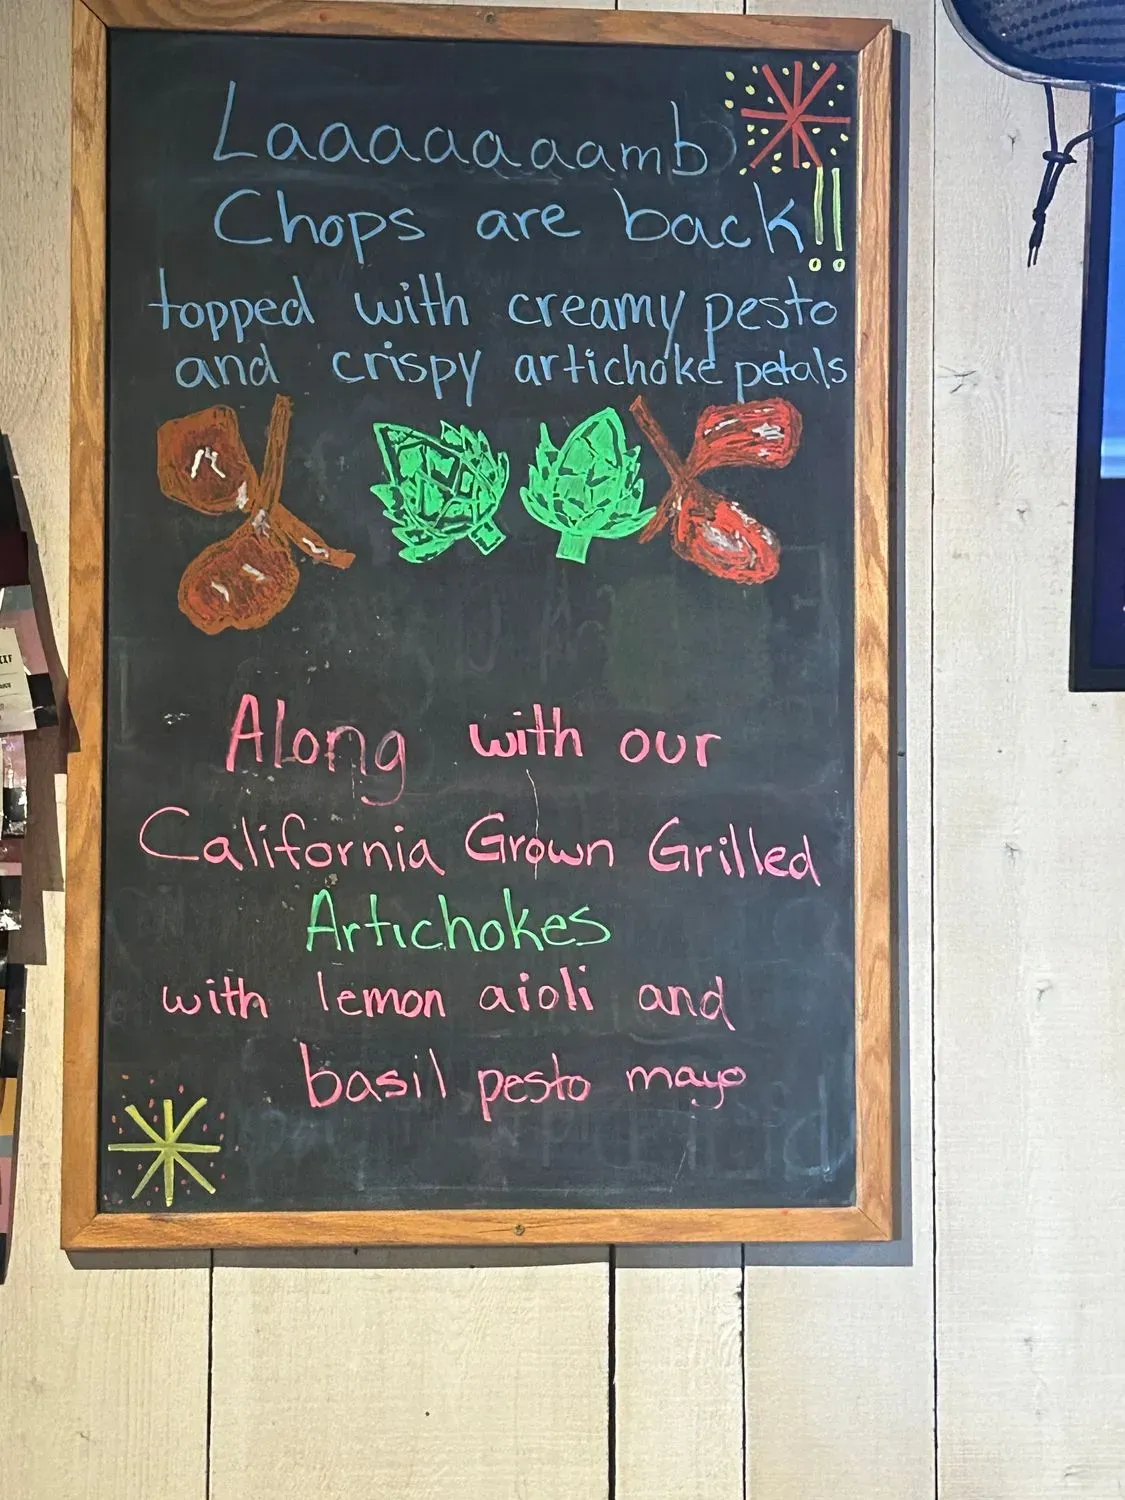 Laaaaaaaamb
Chops are back!!
topped with creamy pesto
and crispy artichoke petals
Along with our
California Grown Grilled
Artichokes
with lemon aioli and
basil pesto mayo